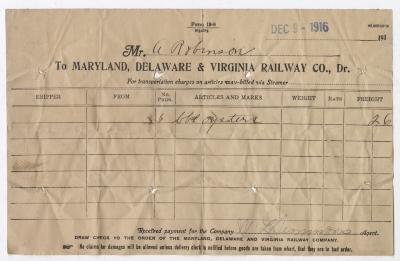 Form 19-8
DEC 9 - 1916
191
Mr. A Robinson
To MARYLAND, DELAWARE & VIRGINIA RAILWAY CO., Dr.
For transportation charges on articles way-billed via Steamer
SHIPPER FROM No. Pkgs. ARTICLES AND MARKS WEIGHT RATE FREIGHT
bbl oysters 26
Received payment for the Company Agent.
DRAW CHECK TO THE ORDER OF THE MARYLAND, DELAWARE AND VIRGINIA RAILWAY COMPANY.
No claims for damages will be allowed unless delivery clerk is notified before goods are taken from wharf, that they are in bad order.